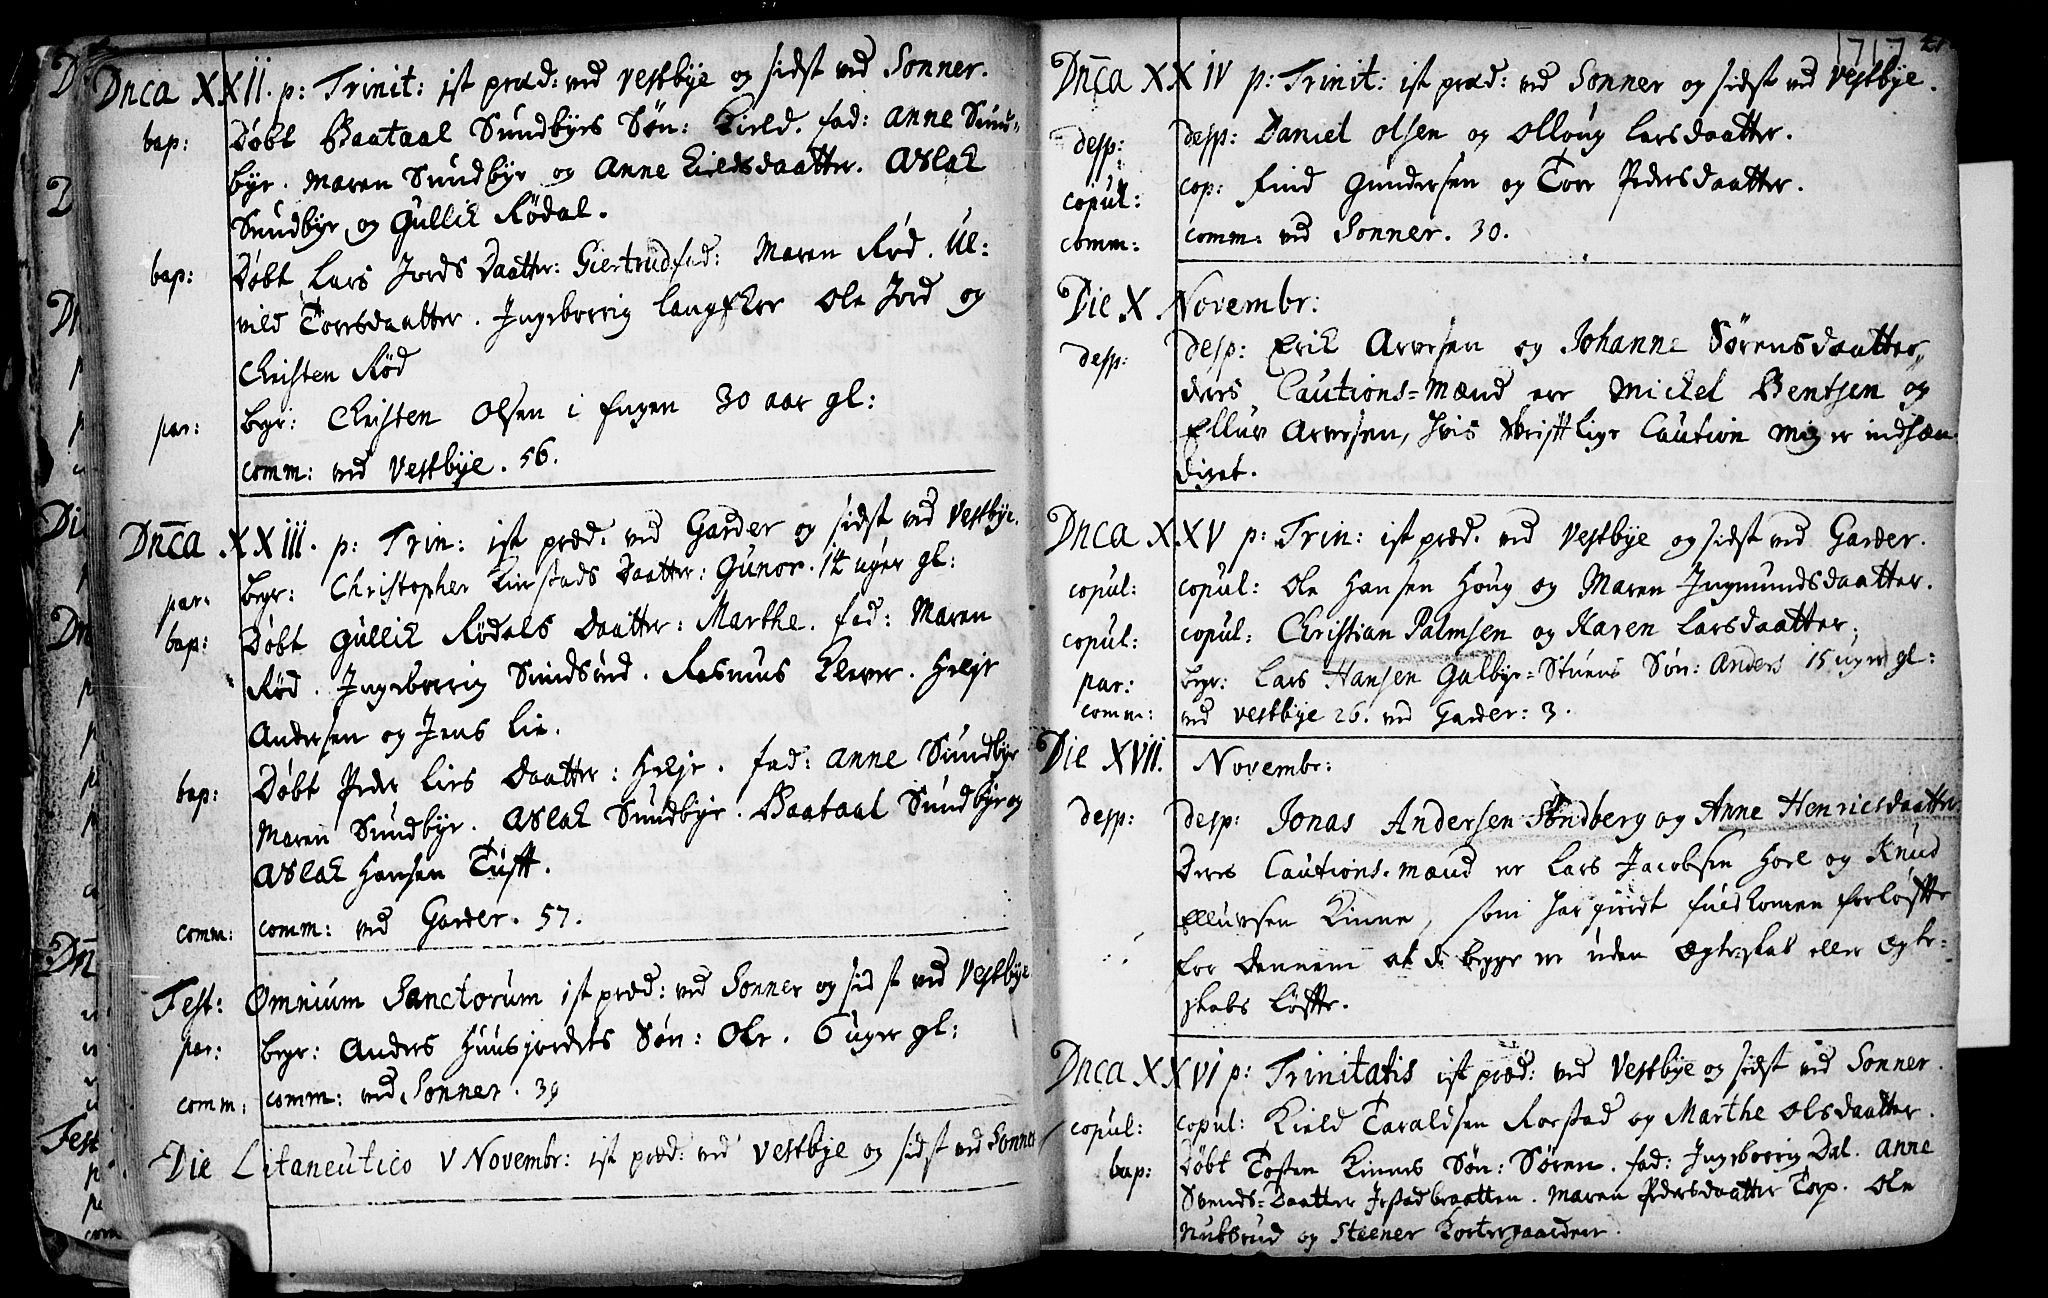 Dnca XXII. p: Trinit: ist præd: ved Vestbye og sidst ved Sonner.
bap: Døbt Baataal Sundbyes Søn: Kield. fad: Anne Sund-
bye. Maren Sundbye og Anne Kieldsdaatter. Aslak
Sundbye og Gullik Rødal.
bap: Døbt Lars Jords Daatter: Giertrud fad: Maren Rød. Ul:
vild Torersdaatter. Ingeborrig Langeker Ole Jord og
Christen Rød
par: begr: Christen Olsen i Engen 30 aar gl:
comm: ved Vestbye. 56.
Dnca XXIII. p: Trin: ist præd: ved Garder og sidst ved Vestbye.
par: begr: Christopher Kinstads Daatter: Gunor. 14 uger gl:
bap: Døbt Gullik Rødals Daatter: Marthe. fad: Maren
Rød. Ingeborrig Sundsrud. Rasmus Klever. Helje
Andersen og Jens Lie.
bap: Døbt Peder Lies Daatter: Helje. fad: Anne Sundbye
Maren Sundbye. Aslak Sundbye. Baataal Sundbye og
Aslak Hansen Tuft.
comm: comm: ved Garder. 57.
Fest: Omnium Sanctorum ist præd: ved Sonner og sidst ved Vestbye
par: begr: Anders Huusjordets Søn: Ole. 6 uger gl:
comm: comm: ved Sonner. 39
Die Litaneutico V Novembr: ist præd: ved Vestbye og sidst ved Sonner
1717
Dnca XXIV p: Trinit: ist præd: ved Sonner og sidst ved Vestbye.
desp: desp: Daniel Olsen og Olloug Larsdaatter.
copul: cop: Find Gundersen og Tore Pedersdaatter.
comm: comm: ved Sonner. 30.
Die X Novembr:
desp: desp: Erik Arvesen og Johanne Sørensdaatter,
deres Cautions-mænd ere Mickel Bentsen og
Elluv Arvesen, hvis Skriftlige Caution mig er indhæn-
diget.
Dnca XXV p: Trin: ist præd: ved Vestbye og sidst ved Garder.
copul: copul: Ole Hansen Houg og Maren Ingmundsdaatter.
copul: copul: Christian Palmsen og Karen Larsdaatter.
par: begr: Lars Hansen Galbye-Stuens Søn: Anders 15 uger gl:
comm: ved Vestbye 26. ved Garder: 3.
Die XVII. Novembr:
desp: desp: Jonas Andersen Søndberg og Anne Henricsdaatter
Deres Cautions-mænd er Lars Jacobsen Hoel og Knud
Elluvsen Kinne, som har giordt fuldkomen forløfte
for dennem at de begge er uden Ægteskab eller Ægte-
skabs Løfte.
Dnca XXVI p: Trinitatis ist præd: ved Vestbye og sidst ved Sonner.
copul: copul: Kield Taraldsen Rorstad og Marthe Olsdaatter.
bap: Døbt Tosten Kinnes Søn: Søren. fad: Ingeborrig Dal. Anne
Svends-Daatter Jestadbraatten. Maren Pedersdaatter Torp. Ole
Nubbrud og Steener Kortergaarden.